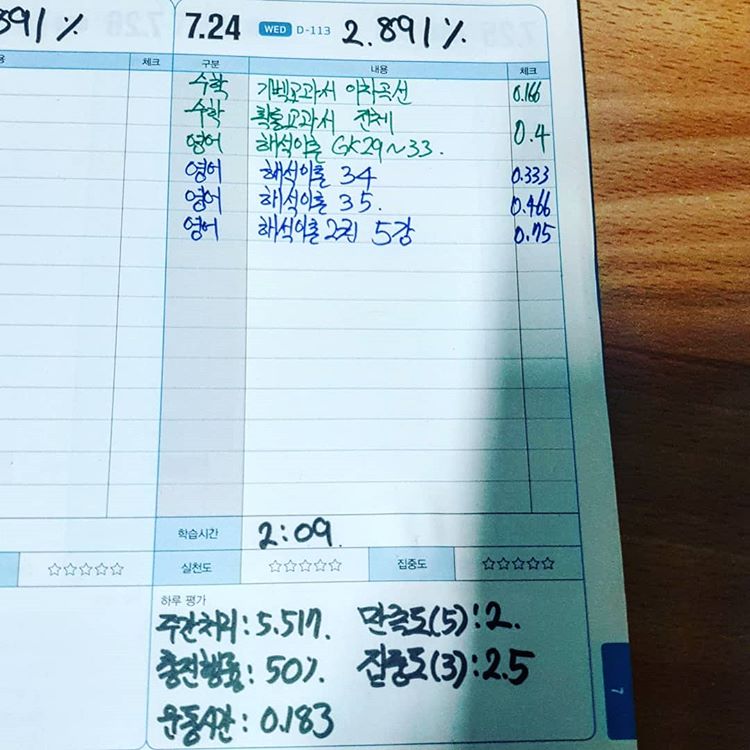 391%
7.24 WED D-113 2.891%
체크 구분 내용 체크
수학 기벡교과서 이차곡선 0.166
수학 확통교과서 전체
0.4
영어 해석이론 GK29~33.
영어 해석이론 34 0.333
영어 해석이론 35. 0.466
영어 해석이론 2권 5강 0.75
학습시간 2:09.
☆☆☆☆☆ 실천도 ☆☆☆☆☆ 집중도 ☆☆☆☆☆
하루 평가
: 5.517. 만족도(5):2.
: 50%. 집중도(3):2.5
운동시간: 0.183
7